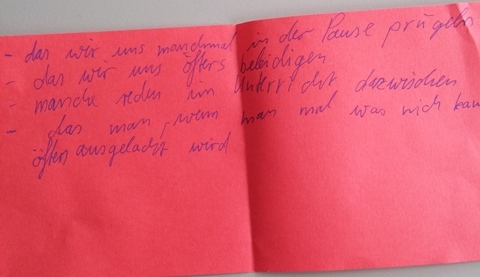 - das wir uns manchmal in der Pause prügeln
- das wir uns öfters beleidigen
- manche reden im Unterricht dazwischen
- das man, wenn man mal was nich kann
öfters ausgelacht wird